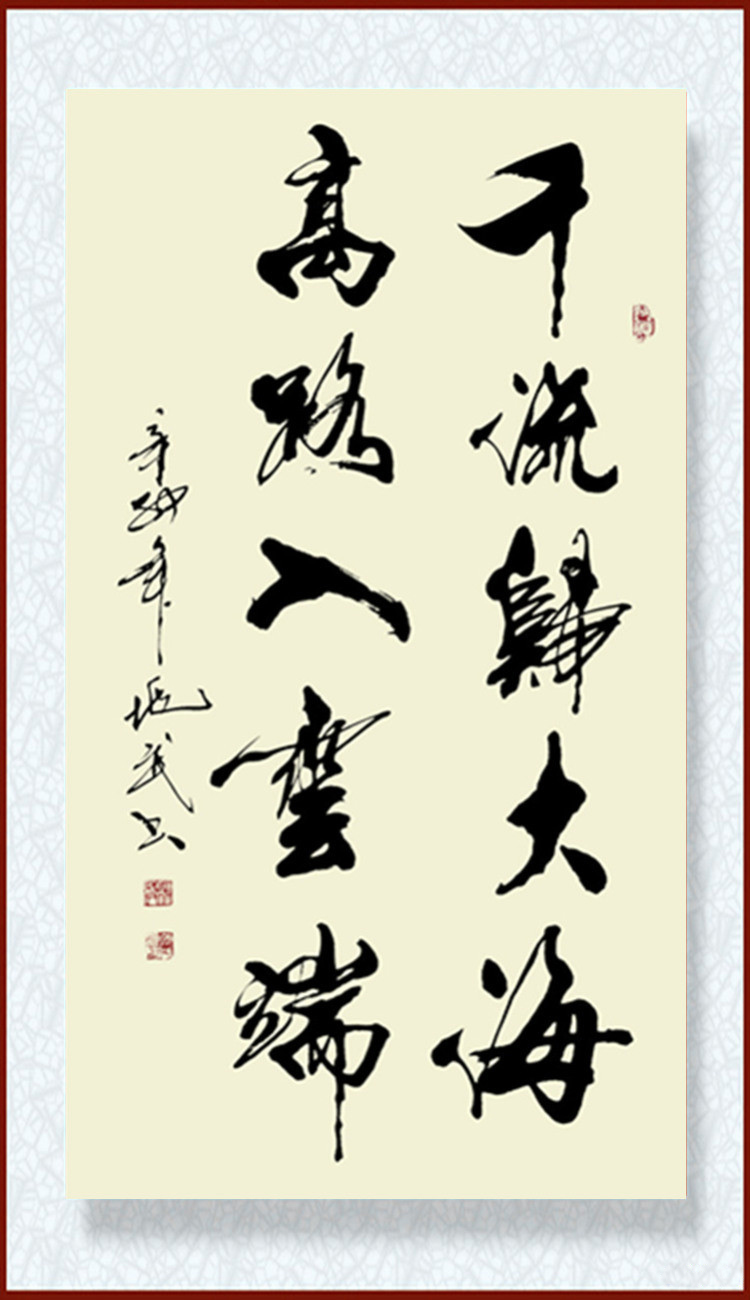 千流歸大海
高路入雲端
辛卯年 武书